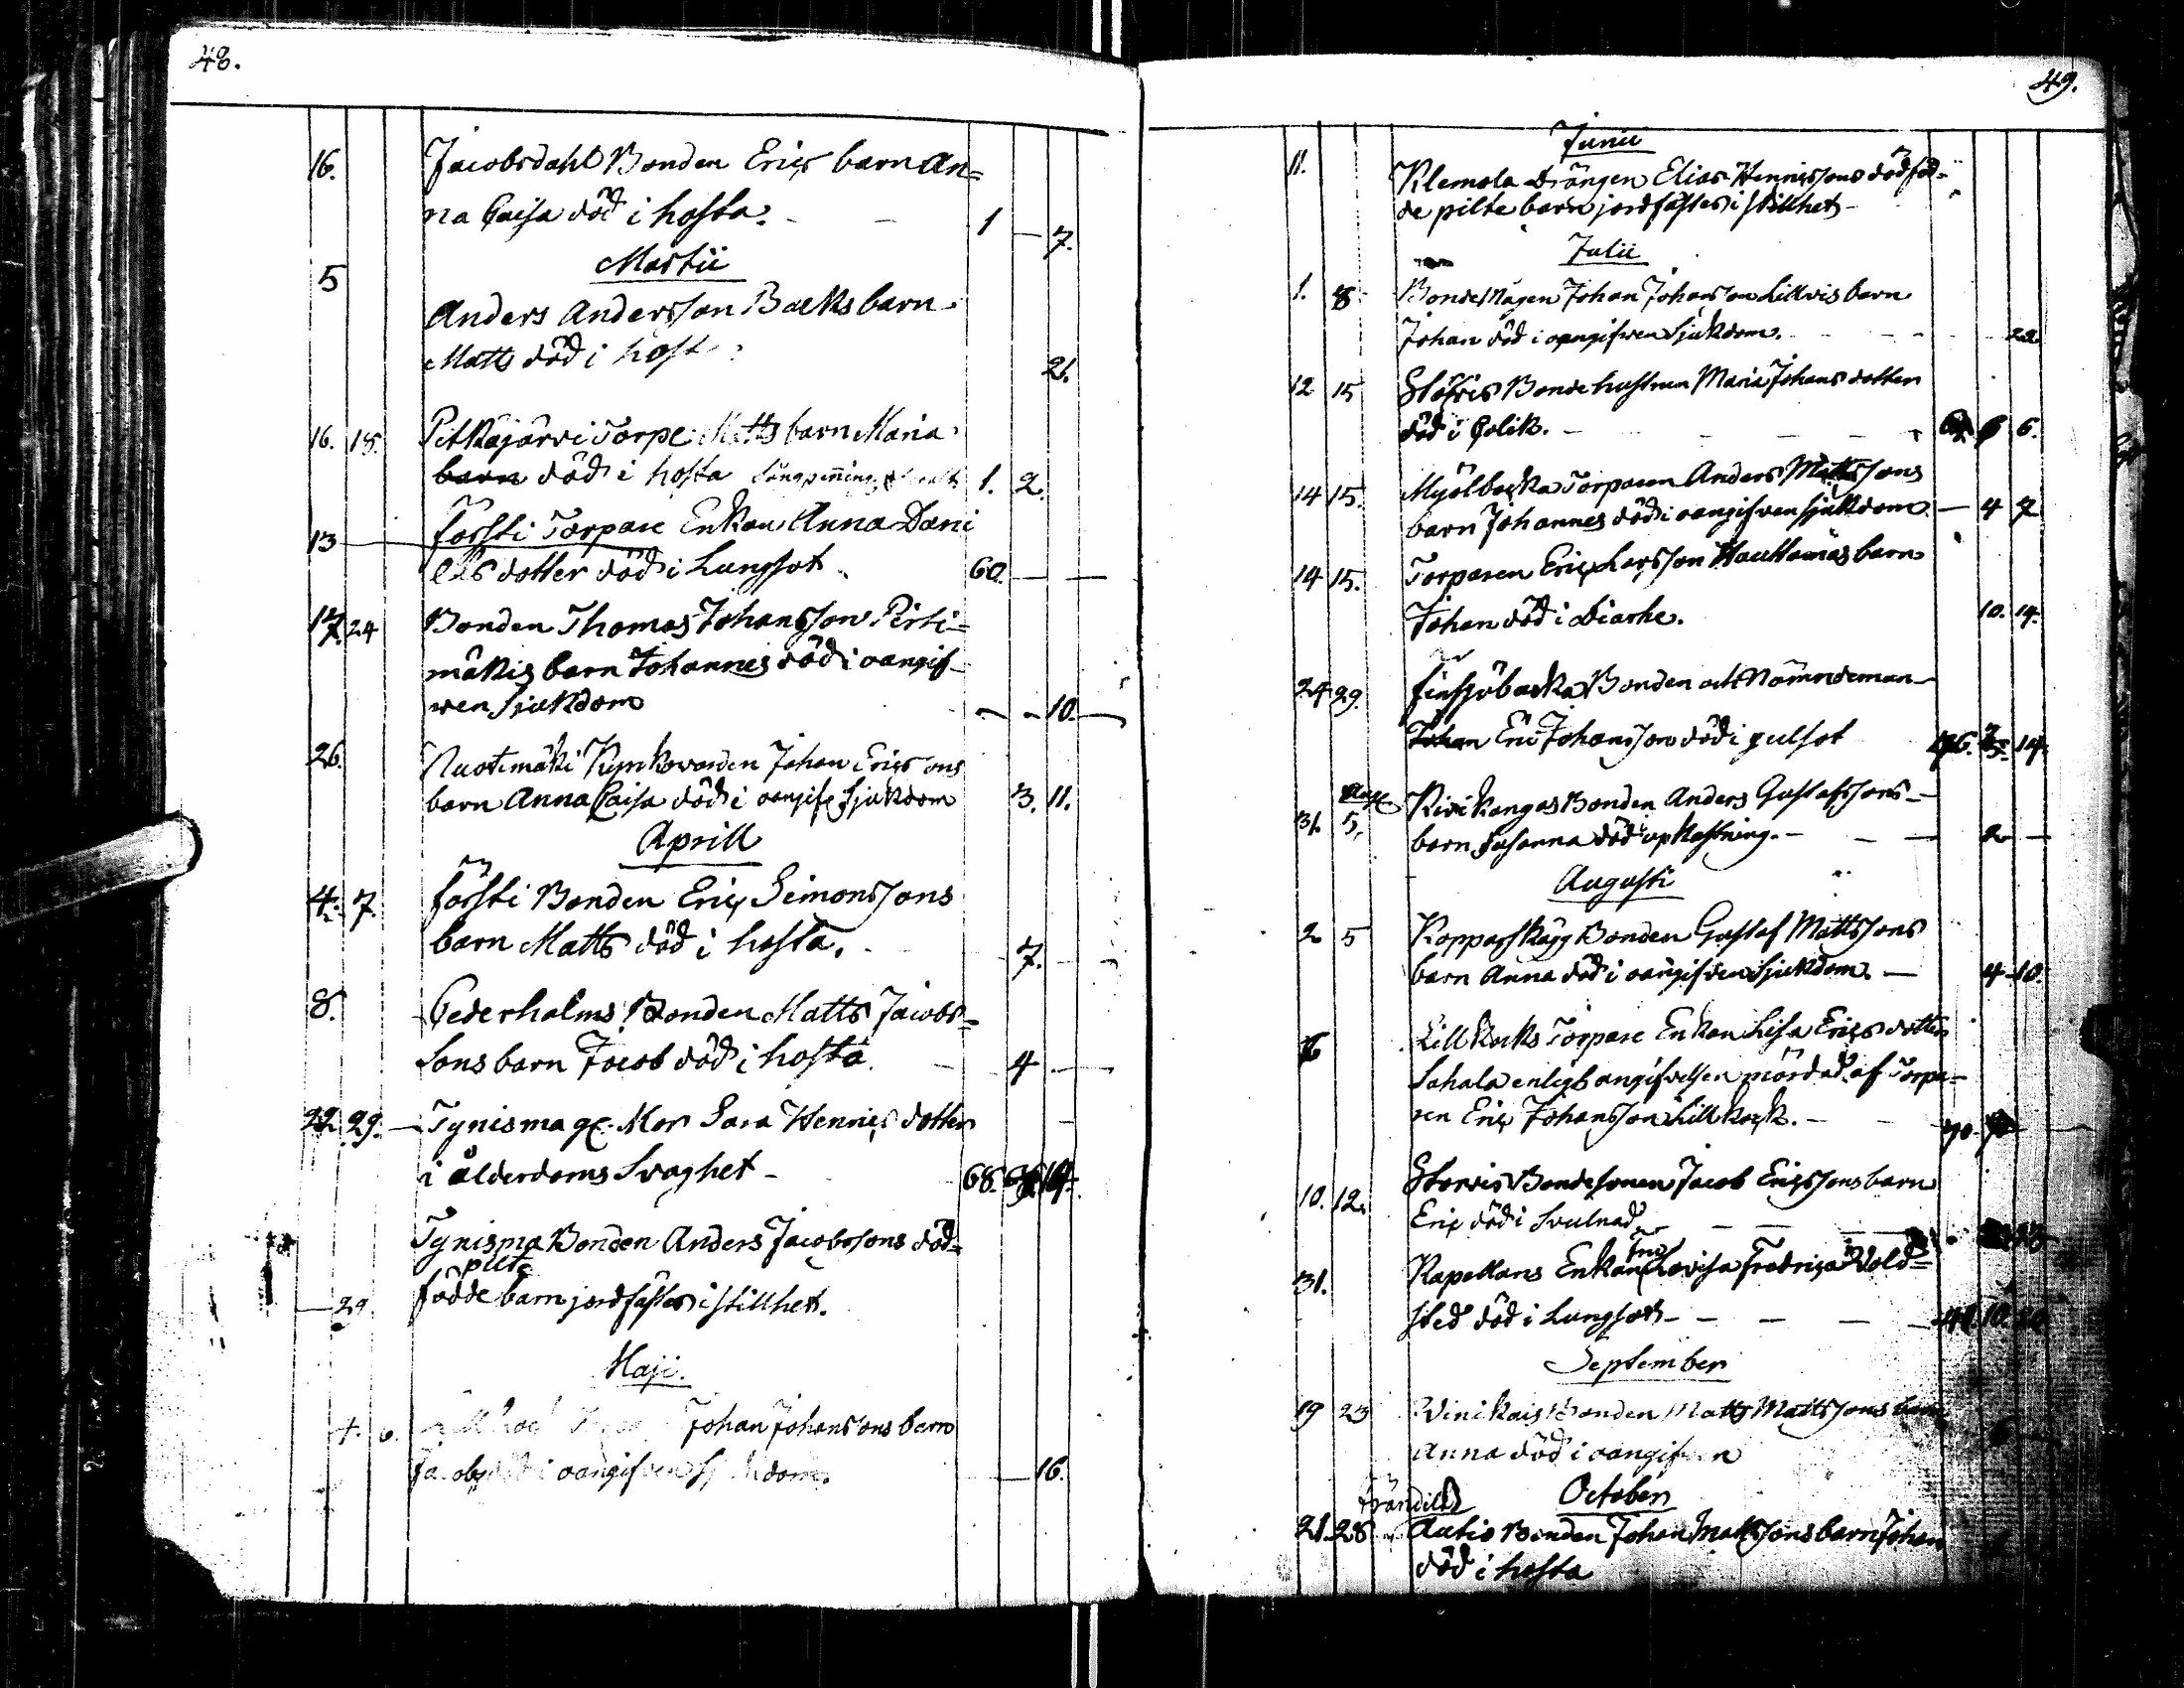 48.
16. Jacobsdahl Bonden Erics barn An=
na Caisa död i hosta. - - 1 - 7.
Martii
5 Anders Andersson Backs barn
Matts död i host 21.
16. 18. Pitkäjärvi Torp Matts barn Maria
barn död i hosta 1. 2.
13 Forsti Torpare Enkan Anna Dani
els dotter död i Lungsot 60. - -
17. 24 Bonden Thomas Johansson Pirti=
mäkis barn Johannes död i oangif-
wen Sjukdom - - 10.
26. Nuotimäki Johan Ericsons
barn Anna Caisa död i oangif. Sjukdom 3. 11.
Aprill
4. 7. Forsti Bonden Eric Simonssons
barn Matts död i hosta. 7. -
8. Cederholms Bonden Matts Jacobs=
Sons barn Jacob död i hosta. - 4 -
22. 29. Tynisma Mor Sara Hennics dotter
i ålderdoms Svaghet - 68.
Tynisma Bonden Anders Jacobssons död=
pilte
- 29. födde barn jordfästes i stillhet.
Maji.
6. Johan Johanssons barn
Jacob i oangifven dom. - 16.
49.
Junii
11. Klemola Drängen Elias Hennicssons dödföd=
de pilte barn jordfästes i stillhet -
Julii
1. 8 Johan Johansson Lillvis barn
Johan död i oangifven Sjukdom. - - - 22.
12 15 Storvis Bonde hustrun Maria Johans dotter
död i Colik. - - - - 6.
14 15. Mjölbacka Torparen Anders Mattssons
barn Johannes död i oangifven sjukdom. - 4 7
14 15. Torparen Eric Larsson Hauttamäs barn
Johan död i Diarhe. 10. 14.
24 29. Finsjöbacka Bonden och Nämndeman
Johan Eric Johansson död i gulsot 14.
Aug
31. 5. Kivikangas Bonden Anders Gustafssons
barn Susanna död i upkastning. - - - 2 -
Augusti
2 5 Kopparskägg Bonden Gustaf Mattssons
barn Anna död i oangifven Sjukdom. - 4 10.
6 Lillkocks Torpare Enkan Lisa Erics dotter
Sahala enligt angifvelsen mördad af Torpa=
ren Eric Johansson Lillkock. - - 70 -
10. 12. Storvis Bondesonen Jacob Ericssons barn
Eric död i Svulnad - -
31. Kapellans Enkan Fru Lovisa Fredrica Vold=
sted död i Lungsot - - - - 10
September
19 23 Vinikais Bonden Matts Mattssons barn
Anna död i oangifven
October
21. 28 Autio Bonden Johan Mattssons barn Johan
död i hosta